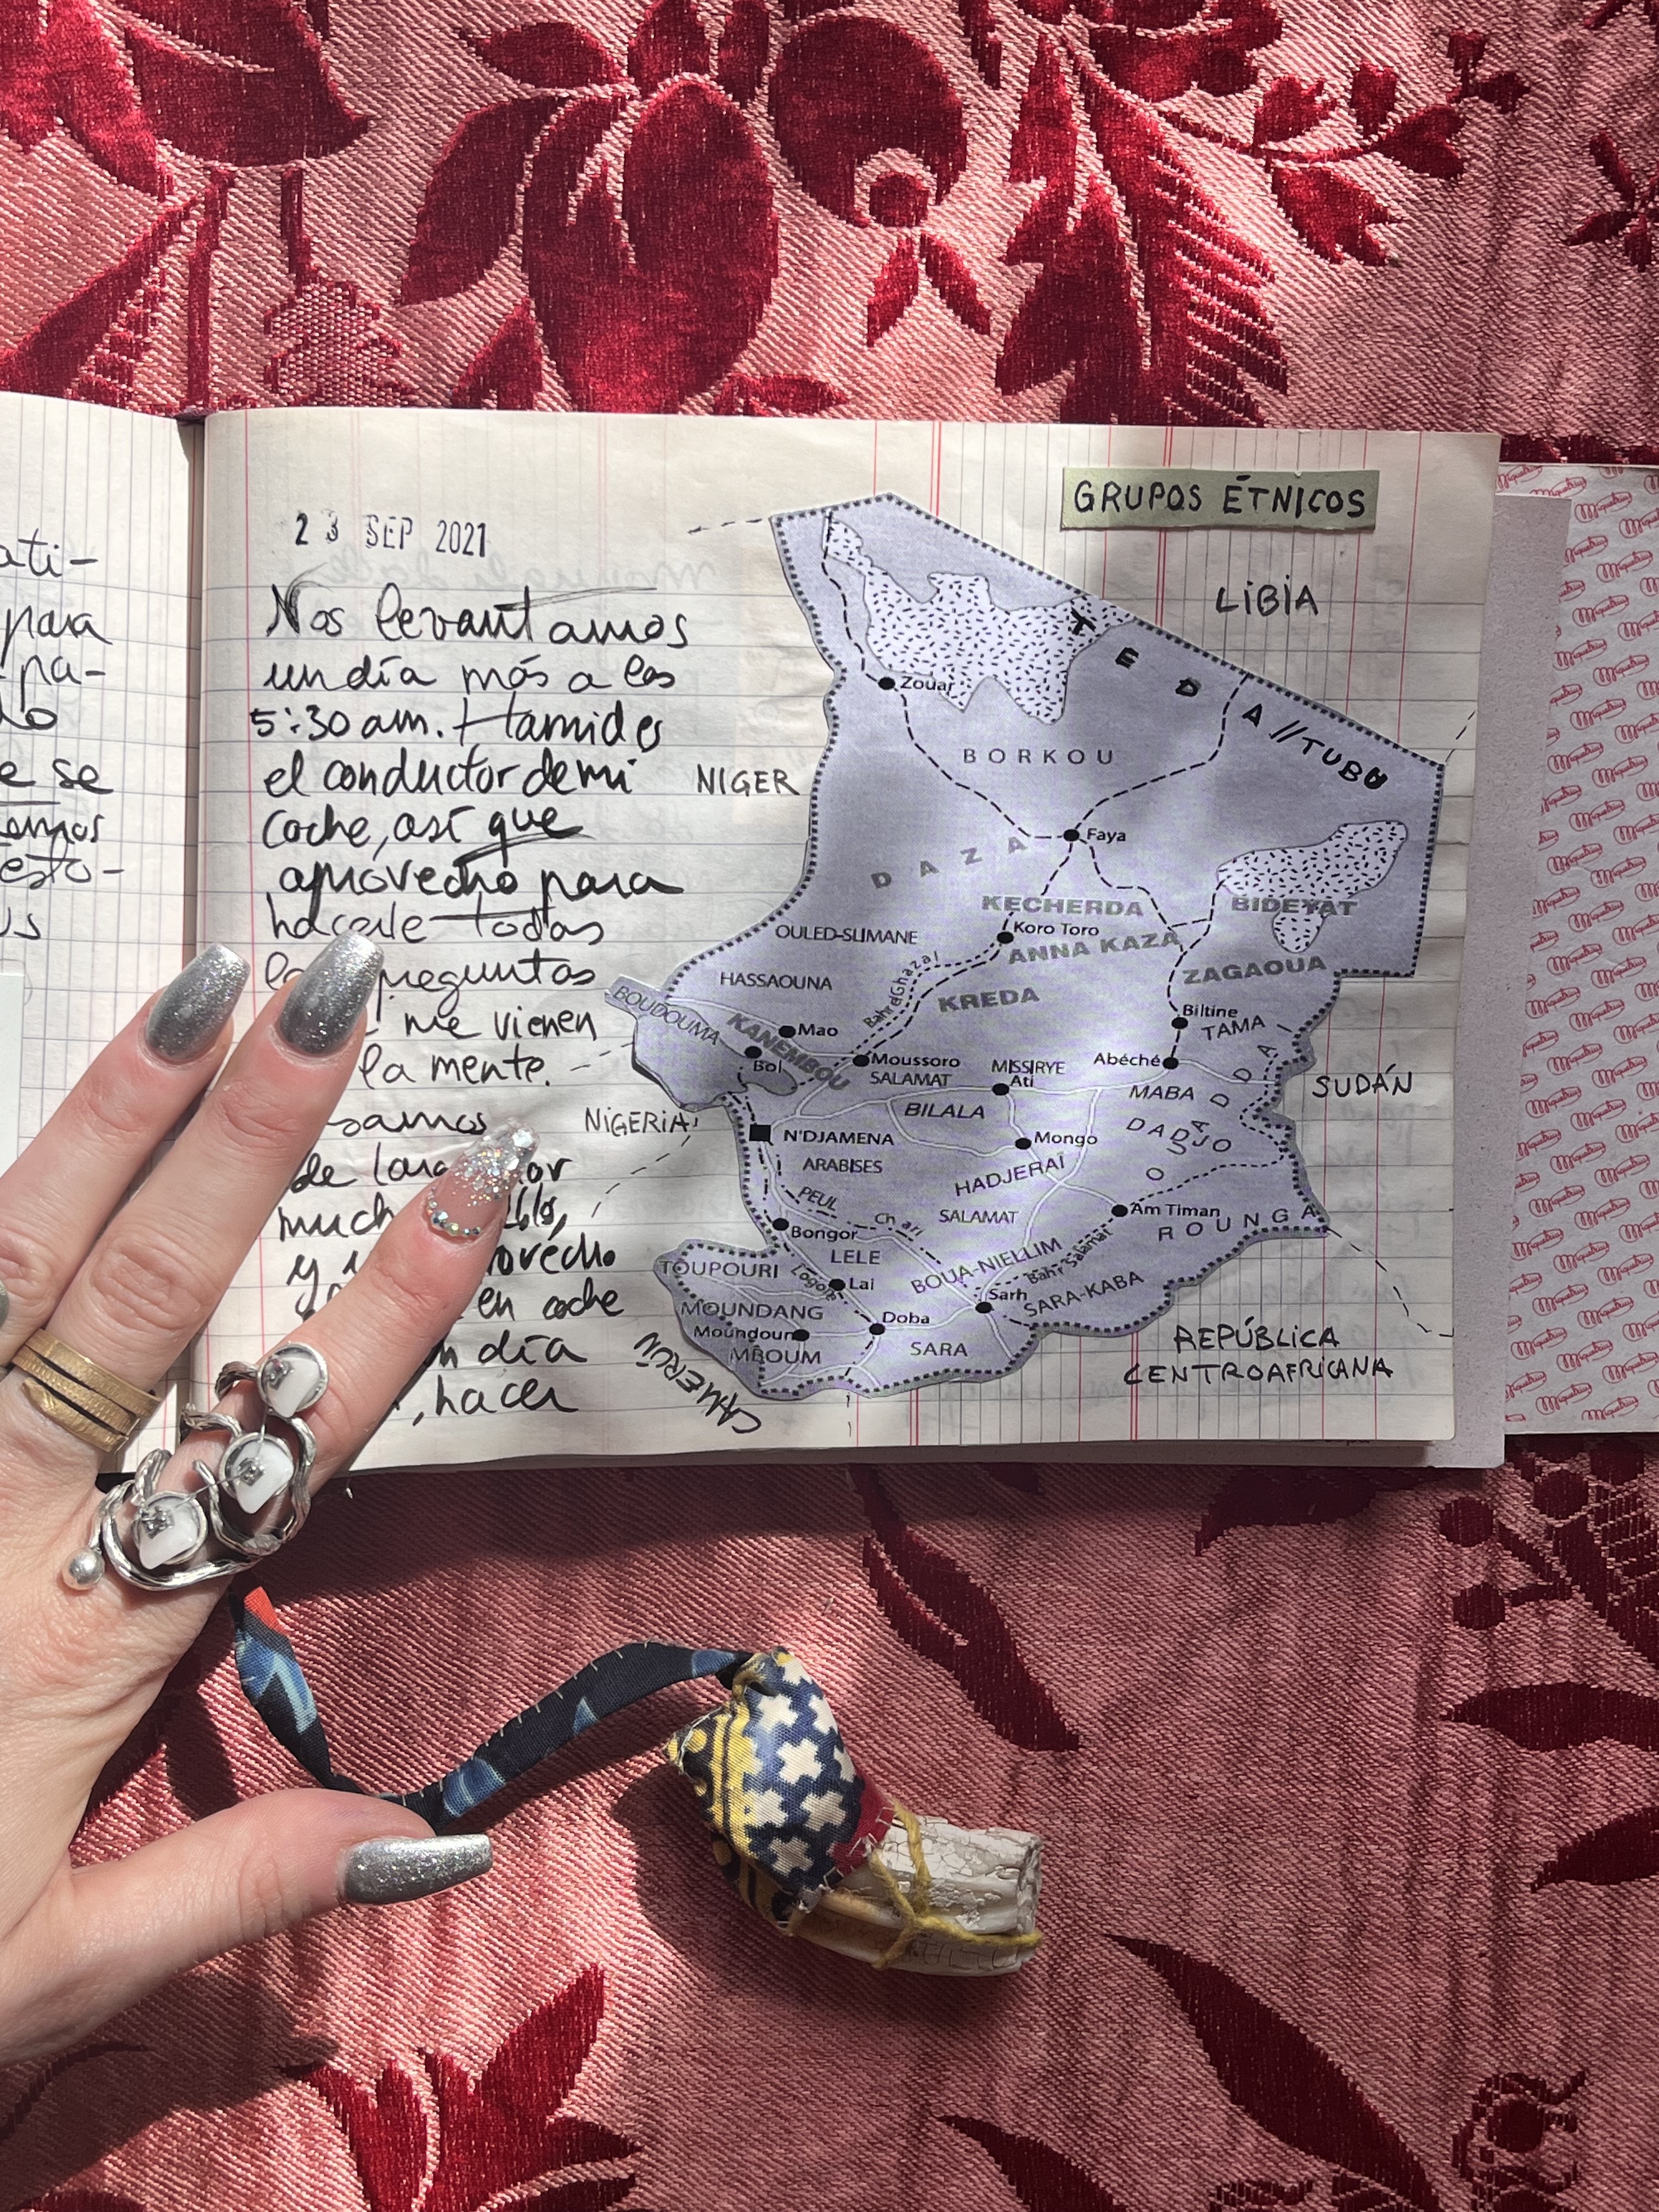 ati-
para
pa-
lo
e se
emos
esto-
us
23 SEP 2021
Nos levantamos
un día más a las
5:30 am. Hamid es
el conductor de mi
coche, así que
aprovecho para
hacerle todas
preguntas
me vienen
la mente.
de largo por
en coche
día
, hacer
GRUPOS ÉTNICOS
LIBIA
TEDA//TUBU
Zouar
BORKOU
NIGER
Faya
DAZA
KECHERDA
BIDEYAT
OULED-SLIMANE
Koro Toro
ANNA KAZA
ZAGAOUA
HASSAOUNA
Bahr el Ghazal
KREDA
BOUDOUMA
KANEMBOU
Mao
Biltine
TAMA
Bol
Moussoro
SALAMAT
MISSIRYE
Ati
Abéché
MABA
SUDÁN
BILALA
NIGERIA
N'DJAMENA
Mongo
DADJO
OUADDAÏ
ARABISES
HADJERAÏ
PEUL
Chari
SALAMAT
Am Timan
ROUNGA
Bongor
LELE
BOUA-NIELLIM
Bahr Salamat
TOUPOURI
Logone
Lai
Sarh
SARA-KABA
MOUNDANG
Doba
Moundou
MBOUM
SARA
CAMERÚN
REPÚBLICA
CENTROAFRICANA
Miquelrius